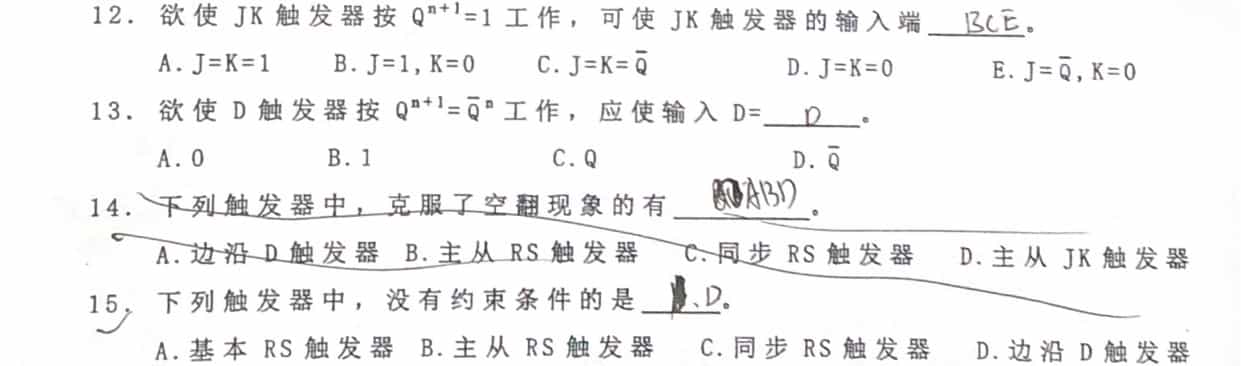 12. 欲使 JK 触发器按 Qⁿ⁺¹=1 工作，可使 JK 触发器的输入端 BCE。
A. J=K=1 B. J=1, K=0 C. J=K=Q̄ D. J=K=0 E. J=Q̄, K=0
13. 欲使 D 触发器按 Qⁿ⁺¹=Q̄ⁿ 工作，应使输入 D= D 。
A. 0 B. 1 C. Q D. Q̄
14. 下列触发器中，克服了空翻现象的有 ABD 。
A. 边沿 D 触发器 B. 主从 RS 触发器 C. 同步 RS 触发器 D. 主从 JK 触发器
15. 下列触发器中，没有约束条件的是 、D。
A. 基本 RS 触发器 B. 主从 RS 触发器 C. 同步 RS 触发器 D. 边沿 D 触发器